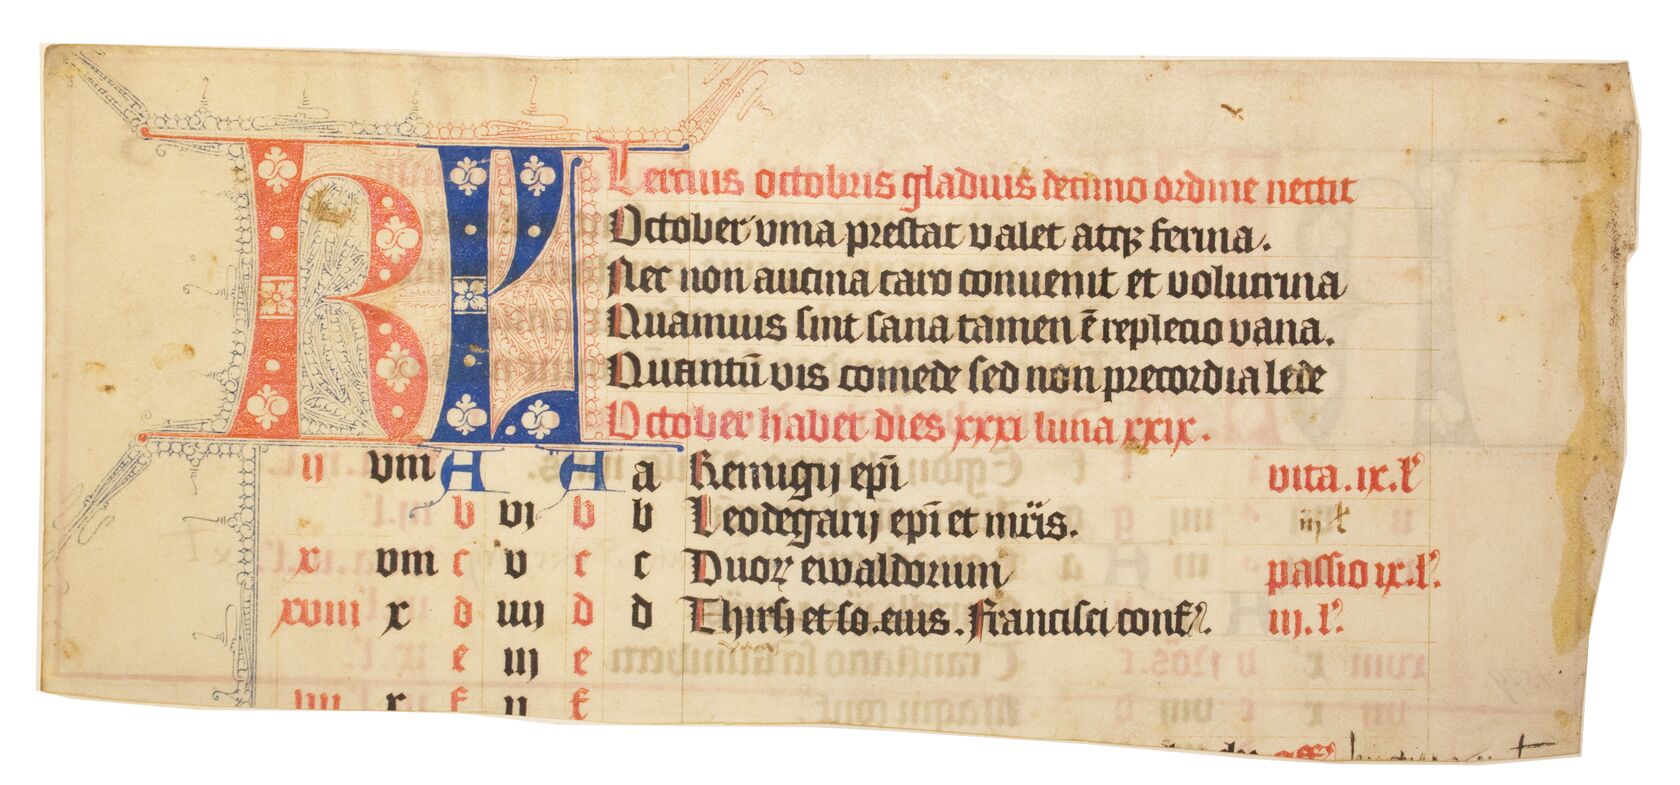 KL Tercius octobris gladiuis decimo ordine nectit
October vina prestat valet atq3 ferina.
Nec non aucina caro convenit et volucrina
Quamuis sint sana tamen ē replecio vana.
Quantū vis comede sed non precordia lede
October habet dies xxxi luna xxix.
ij viii A A a Remigij epī vita .ix. l'
b vj b b Leodegarij epī et mr̄is. iij l'
x viii c v c c Duoꝝ ewaldorum passio ix. l'.
xviii x d iiij d d Thirsi et so. eius. Francisci conf. iij. l'.
e iij e
f ij f